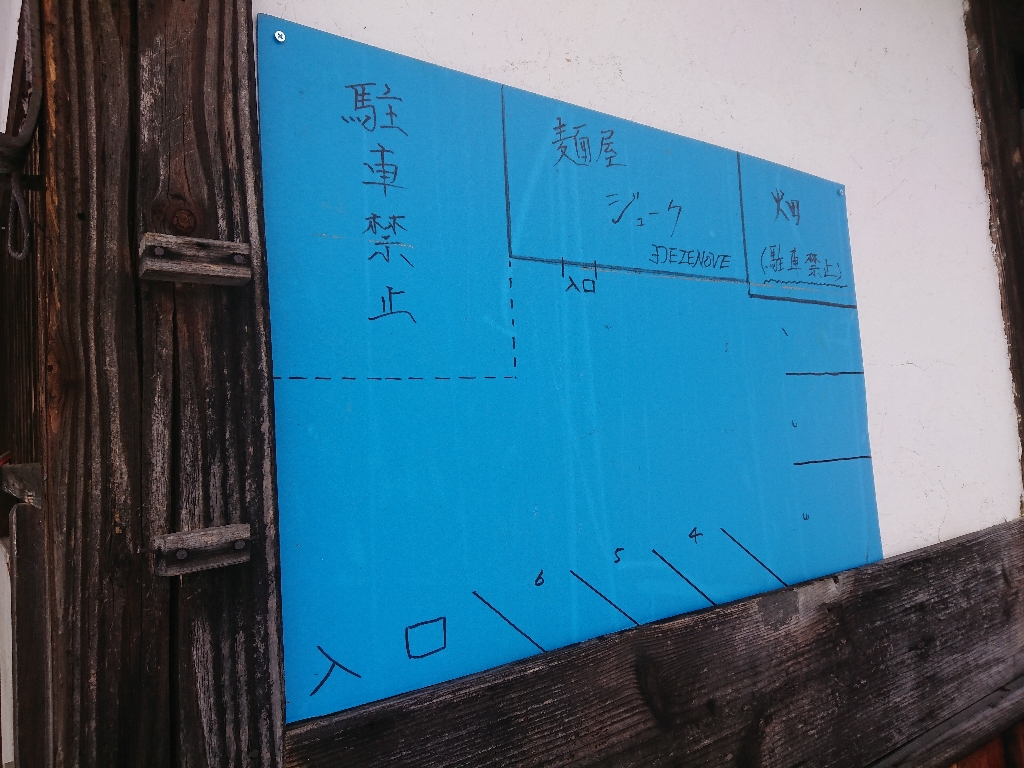 駐車禁止
麺屋
ジューク
ヨDEZENOVE
入口
畑
(駐車禁止)
4
5
6
入口